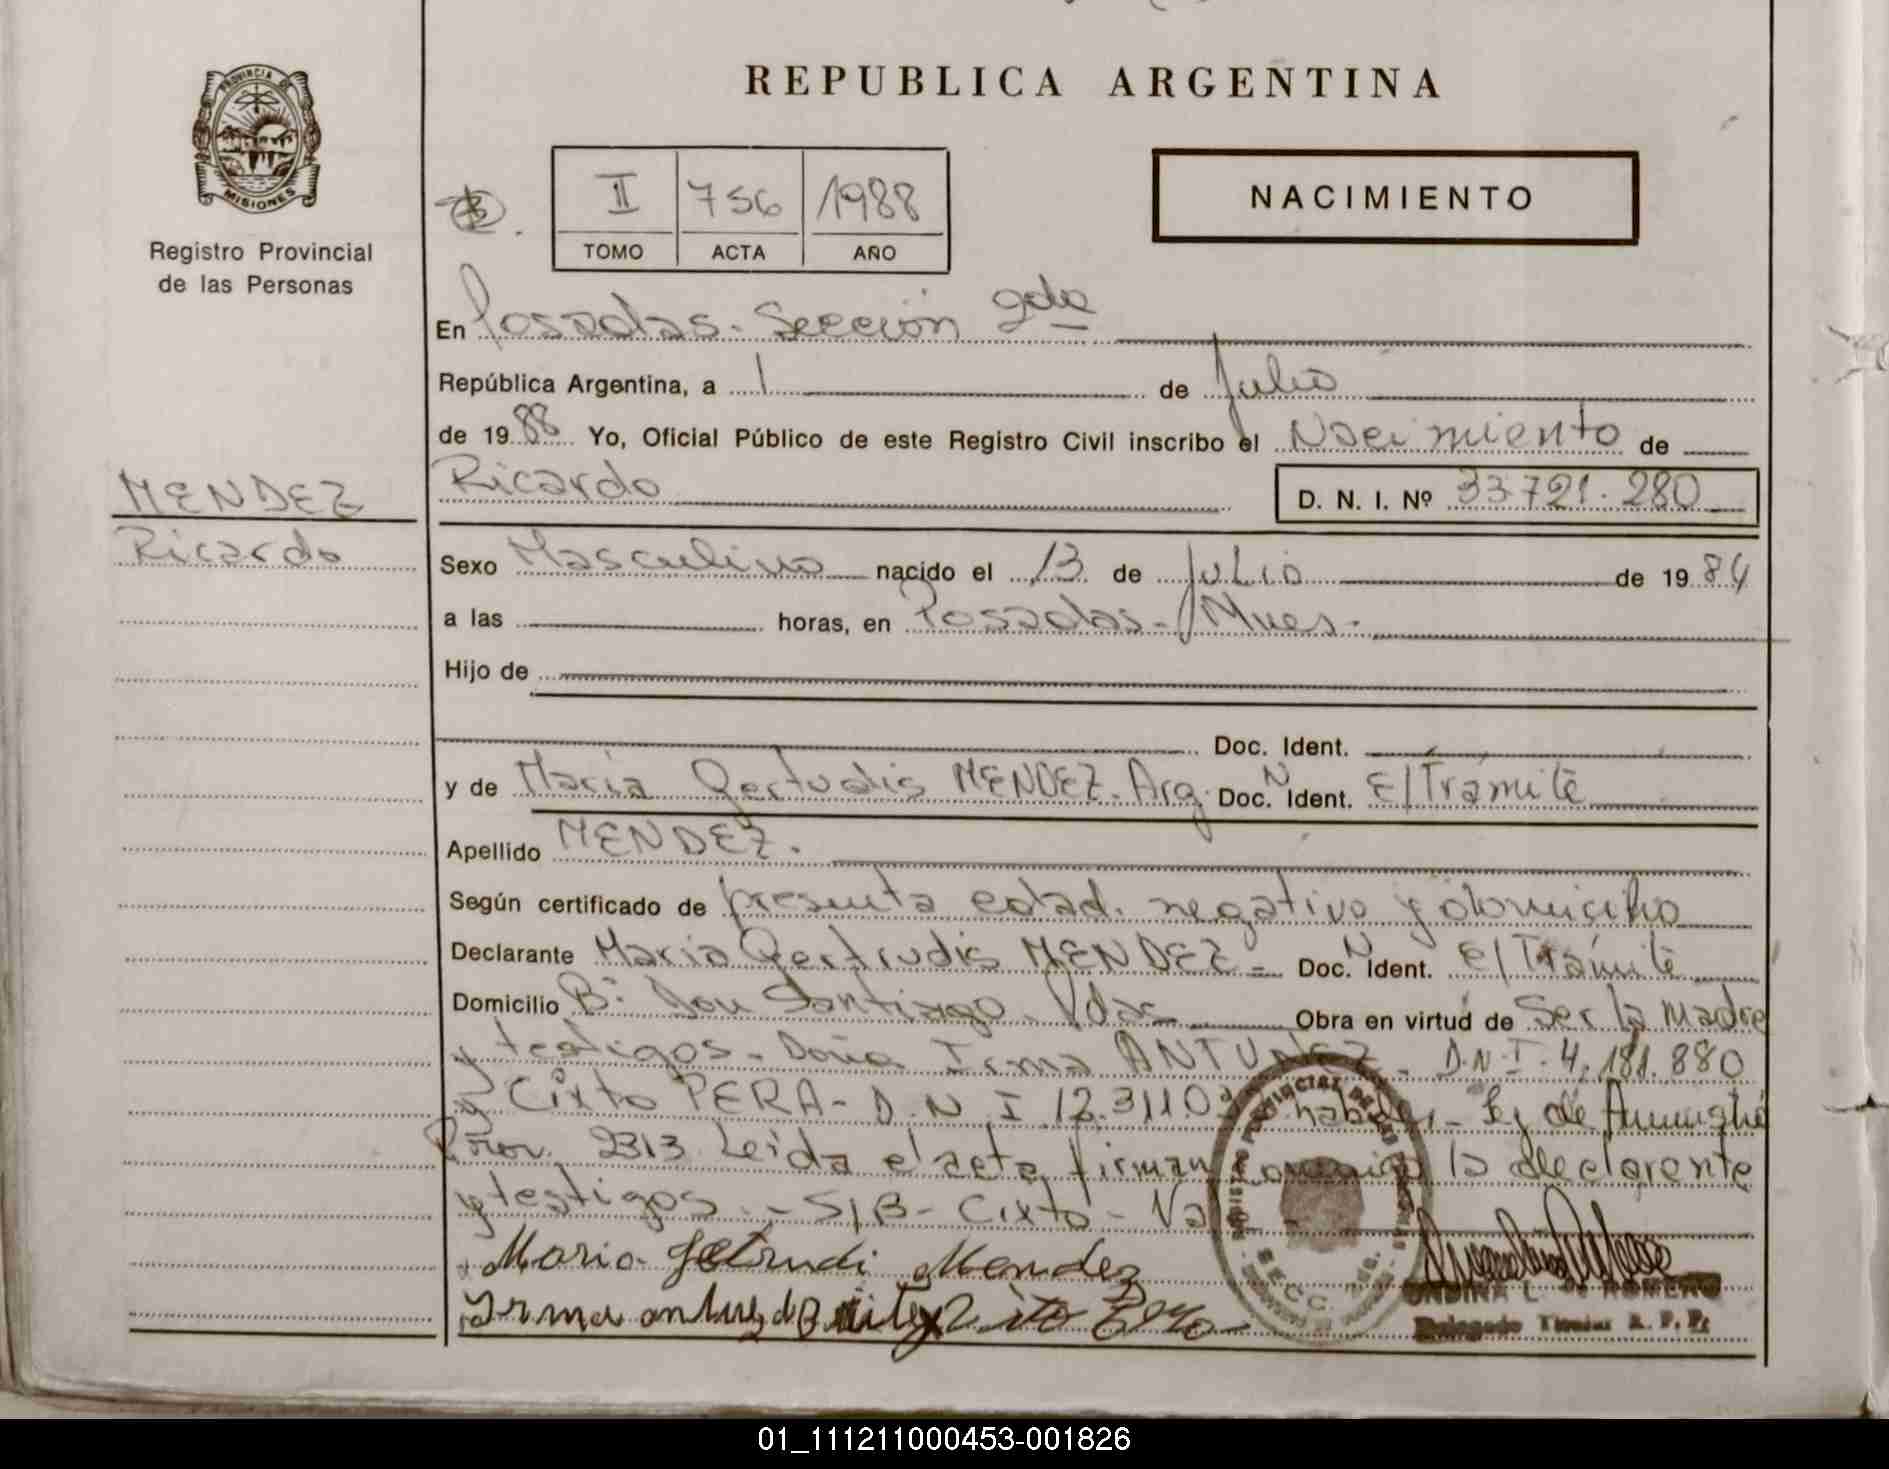 REPUBLICA ARGENTINA
PROVINCIA DE
MISIONES
Registro Provincial
de las Personas
II 756 1988
TOMO ACTA AÑO
NACIMIENTO
En Posadas. Sección 2da
República Argentina, a 1 de Julio
de 1988 Yo, Oficial Público de este Registro Civil inscribo el Nacimiento de
MENDEZ
Ricardo
Ricardo D. N. I. Nº 33.721.280
Sexo Masculino nacido el 13 de Julio de 1984
a las horas, en Posadas - Mnes.
Hijo de
Doc. Ident.
y de María Gertudis MENDEZ. Arg. Doc. N Ident. E/Trámite
Apellido MENDEZ.
Según certificado de presunta edad. negativo y domicilio
Declarante Maria Gertrudis MENDEZ - Doc. N Ident. E/Trámite
Domicilio B: Don Santiago. Pdas Obra en virtud de Ser la madre
y testigos - Doña Irma ANTUNEZ - D.N.I. 4.181.880
y Cixto PERA - D.N.I 12.3110 Ley de
Prov. 2313 Leida el acta firman conmigo la declarante
y testigos. - S/B - Cixto - Va
Maria Mendez
Irma
Delegado Titular R. P. P.
01_111211000453-001826